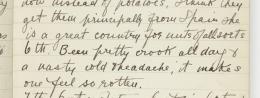 now instead of potatoes, I think they
get them principally from Spain she
is a great country for nuts of all sorts
6th. Been pretty crook all day &
a nasty cold & headache, it makes
one feel so rotten.
7th